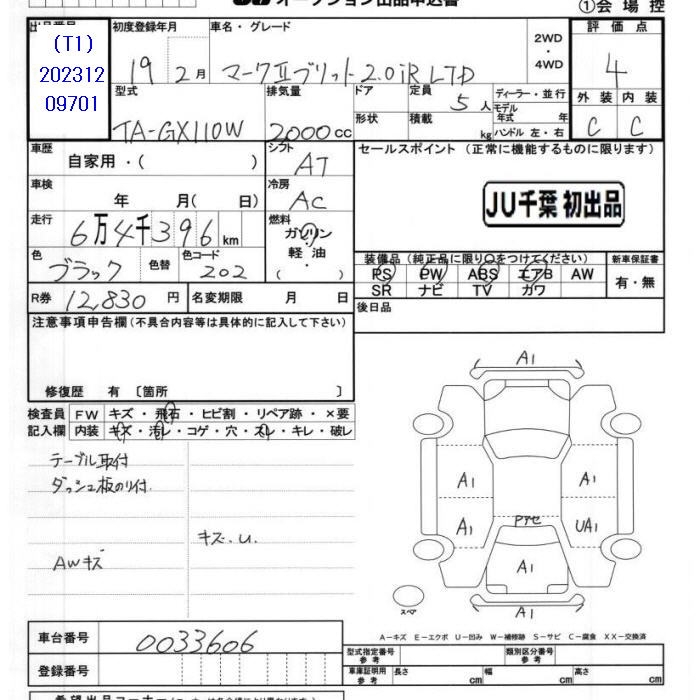 JU オークション出品申込書
①会場控
出品番号
(T1)
202312
09701
初度登録年月
19 2月
車名・グレード
マークⅡブリット2.0iR LTD
2WD
・
4WD
評価点
4
外装 内装
C C
型式
TA-GX110W
排気量
2000cc
ドア
形状
定員
5人
積載
kg
ディーラー・並行
モデル年式 年
ハンドル 左・右
車歴
自家用・( )
シフト
AT
セールスポイント (正常に機能するものに限ります)
JU千葉 初出品
車検
年 月( 日)
冷房
AC
走行
6万4千396km
燃料
ガソリン
軽油
・
( )
色
ブラック
色替
色コード
202
装備品(純正品に限り○をつけてください)
PS PW ABS エアB AW
SR ナビ TV カワ
新車保証書
有・無
R券 12,830 円
名変期限 月 日
後日品
注意事項申告欄(不具合内容等は具体的に記入して下さい)
修復歴 有 〔箇所 〕
検査員
記入欄
FW キズ・飛石・ヒビ割・リペア跡・×要
内装 キズ・汚レ・コゲ・穴・スレ・キレ・破レ
テーブル取付
ダッシュ板のり付.
キズ.U.
AWキズ
A1
A1
A1
A1
UA1
アセ
A1
A1
スペア
A―キズ E―エクボ U―凹み W―補修跡 S―サビ C―腐食 XX―交換済
車台番号
0033606
登録番号
型式指定番号
参考
類別区分番号
参考
車庫証明用
参考
長さ cm
幅 cm
高さ cm
希望出品コーナー